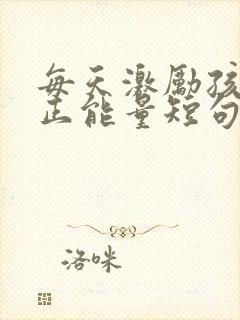 每天激励孩
正能量短句
洛咪